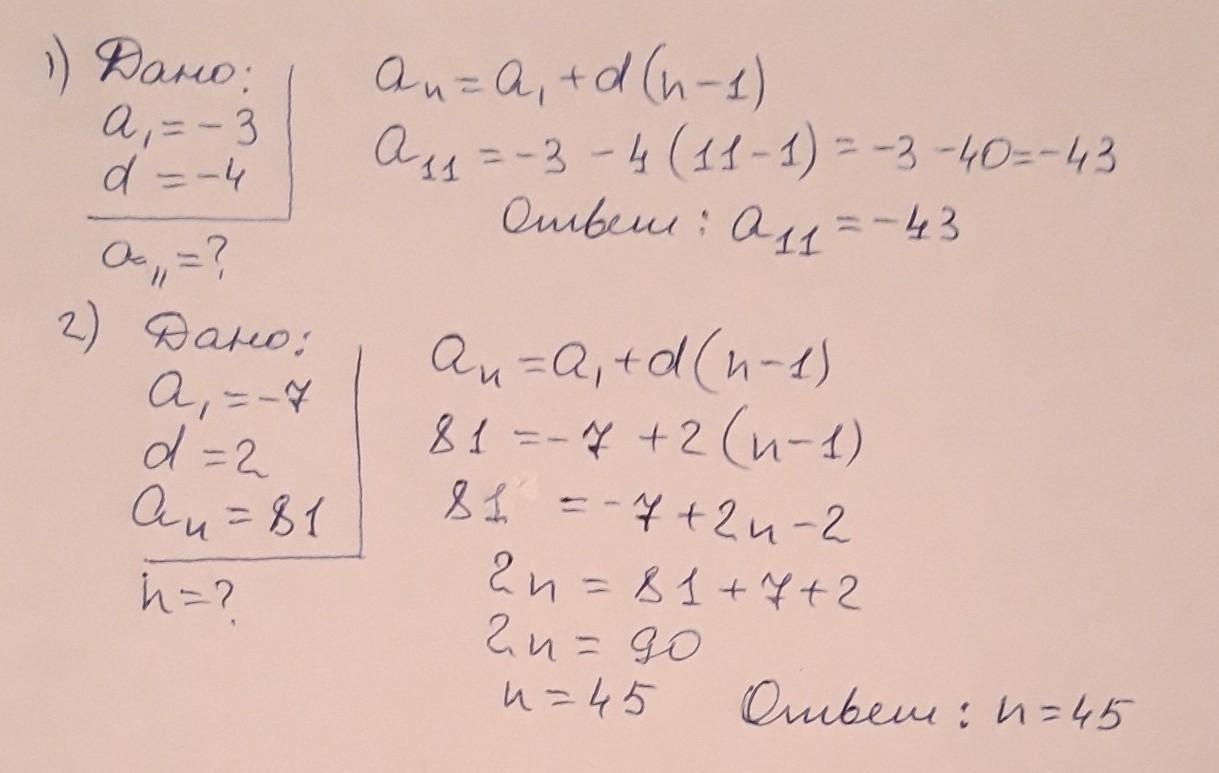 1) Дано:
a₁ = -3
d = -4
a₁₁ = ?
aₙ = a₁ + d(n-1)
a₁₁ = -3 - 4(11-1) = -3 - 40 = -43
Ответ: a₁₁ = -43
2) Дано:
a₁ = -7
d = 2
aₙ = 81
n = ?
aₙ = a₁ + d(n-1)
81 = -7 + 2(n-1)
81 = -7 + 2n - 2
2n = 81 + 7 + 2
2n = 90
n = 45
Ответ: n = 45